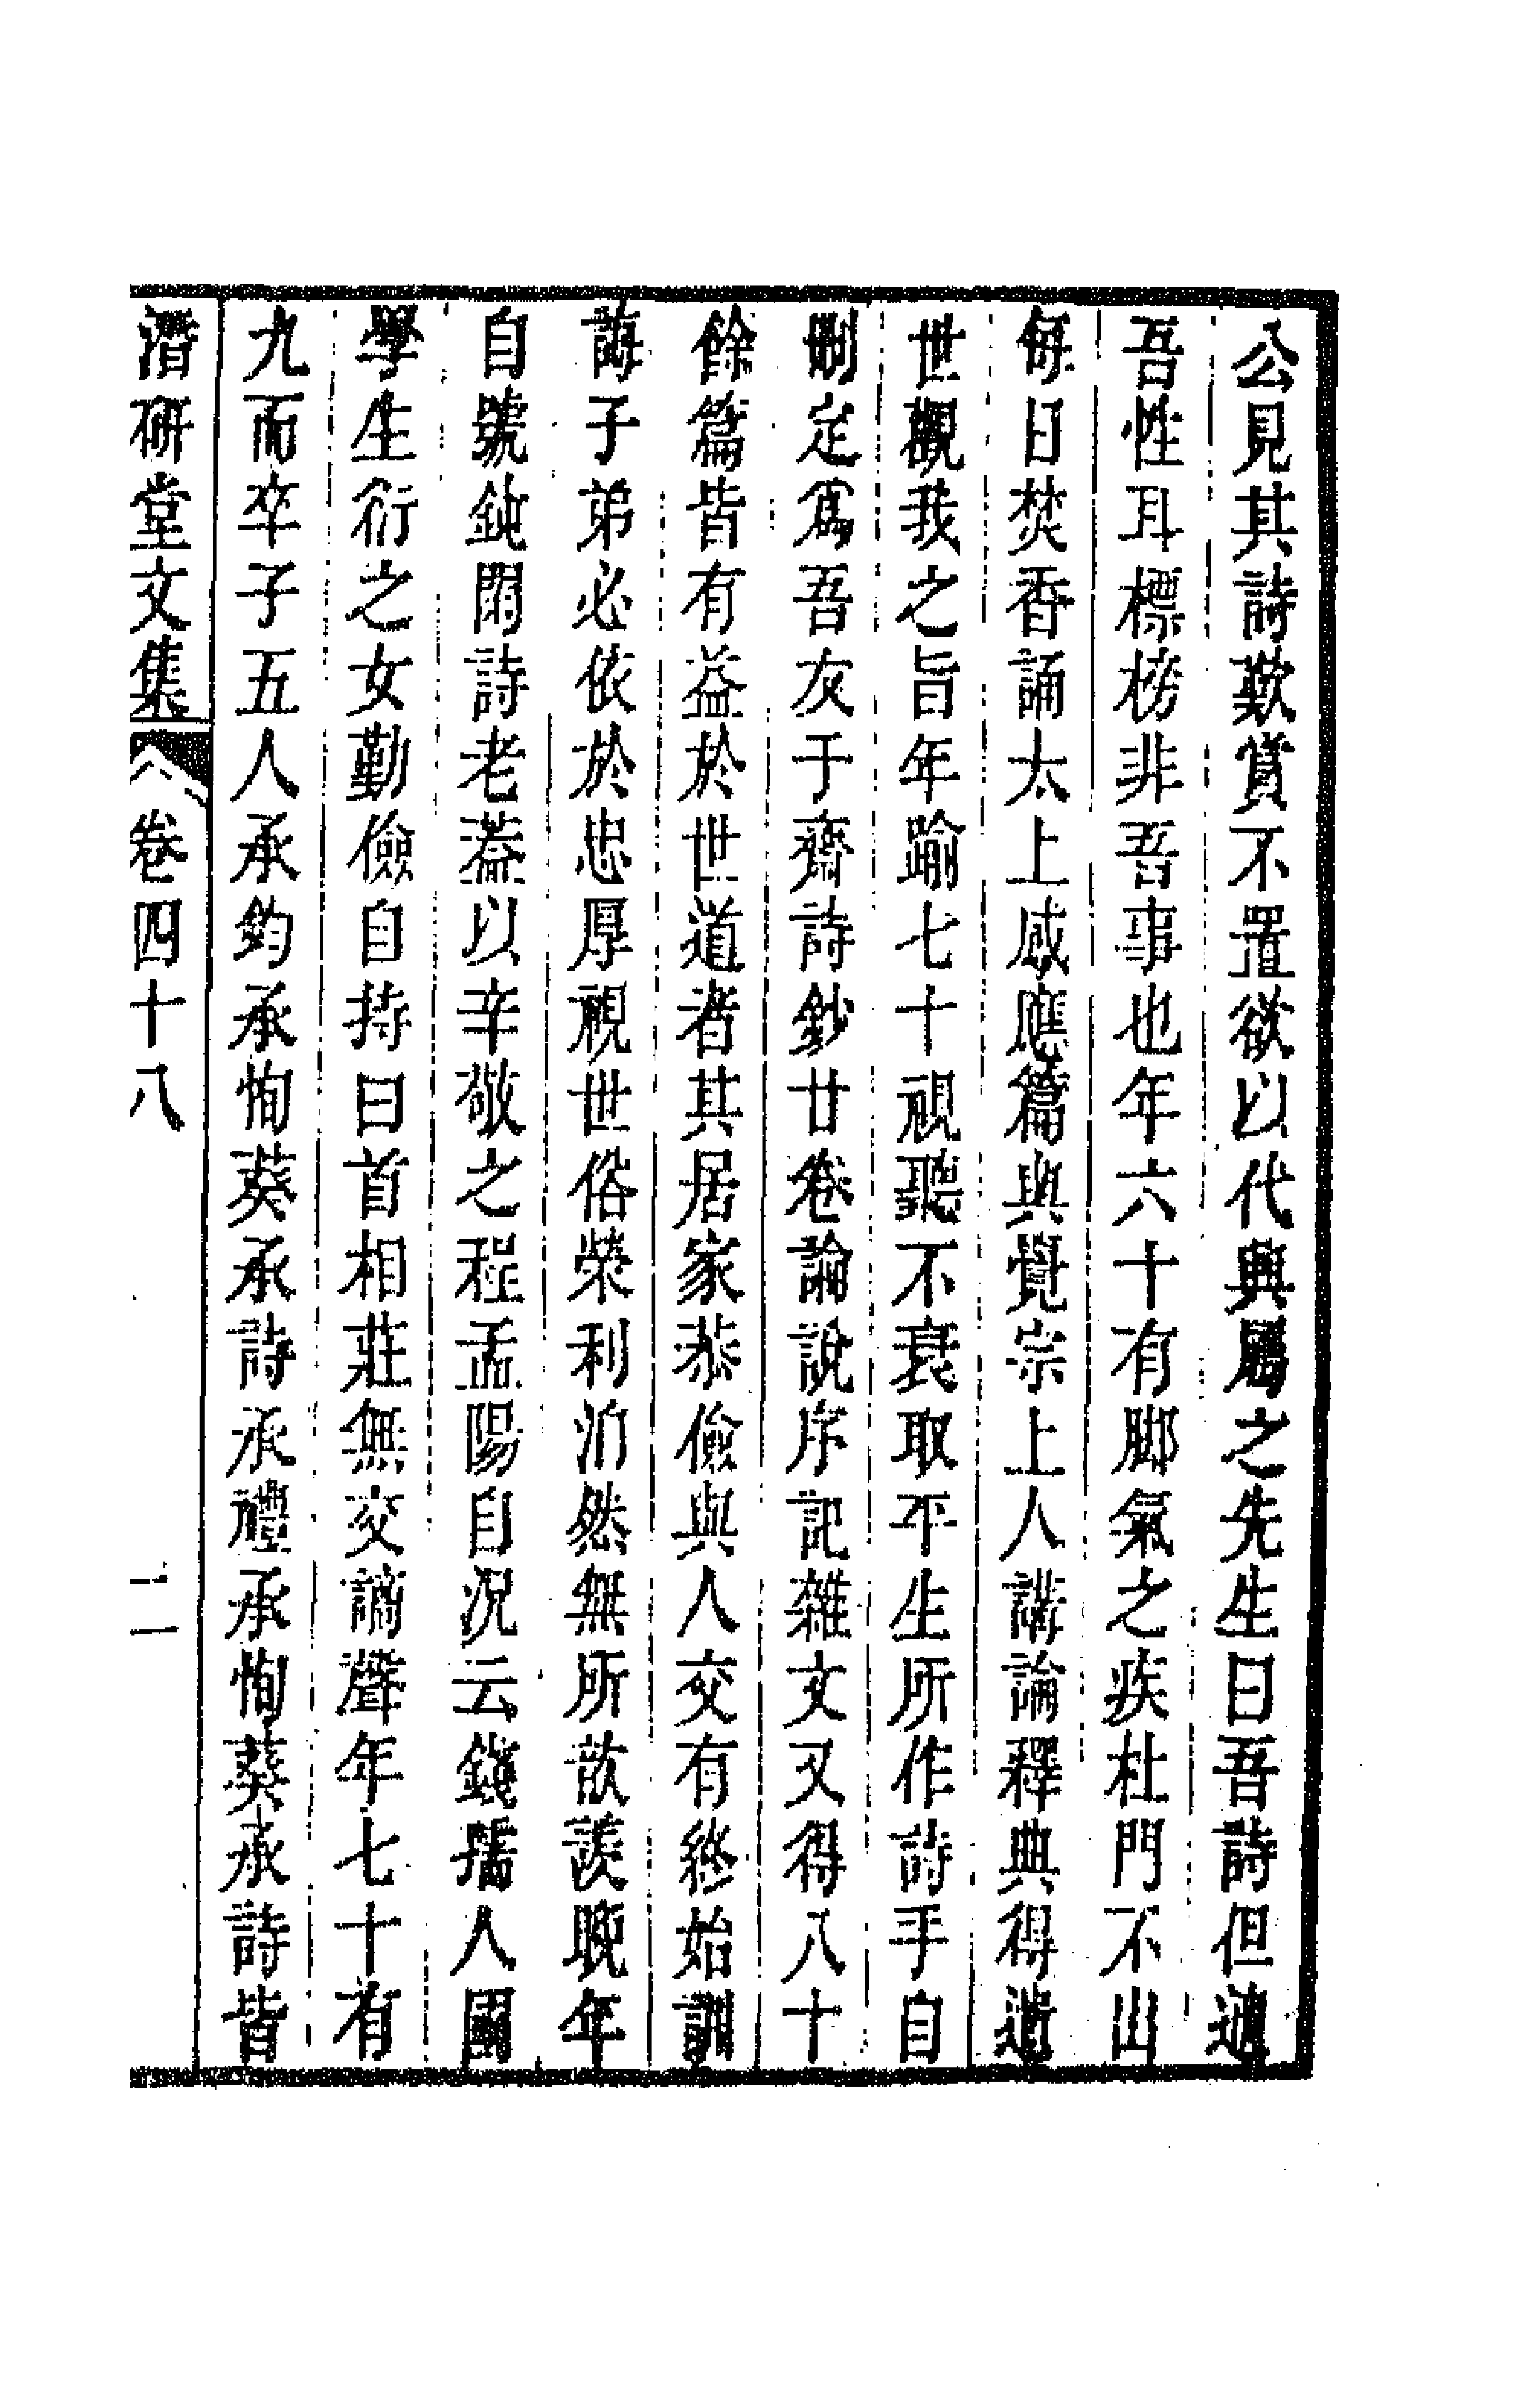 公見其詩歎賞不置欲以代典屬之先生曰吾詩但適
吾性耳標榜非吾事也年六十有腳氣之疾杜門不出
每日焚香誦太上感應篇與覺宗上人講論釋典得遺
世觀我之旨年踰七十視聽不衰取平生所作詩手自
刪定為吾友于齋詩鈔廿卷論說序記雜文又得八十
餘篇皆有益於世道者其居家恭儉與人交有終始訓
誨子弟必依於忠厚視世俗榮利泊然無所歆羨晚年
自號鈍閒詩老蓋以辛敬之程孟陽自況云錢孺人國
學生衍之女勤儉自持曰首相莊無交謫聲年七十有
九而卒子五人承鈞承恂葵承詩承禮承恂葵承詩皆
潛研堂文集 卷四十八 二一